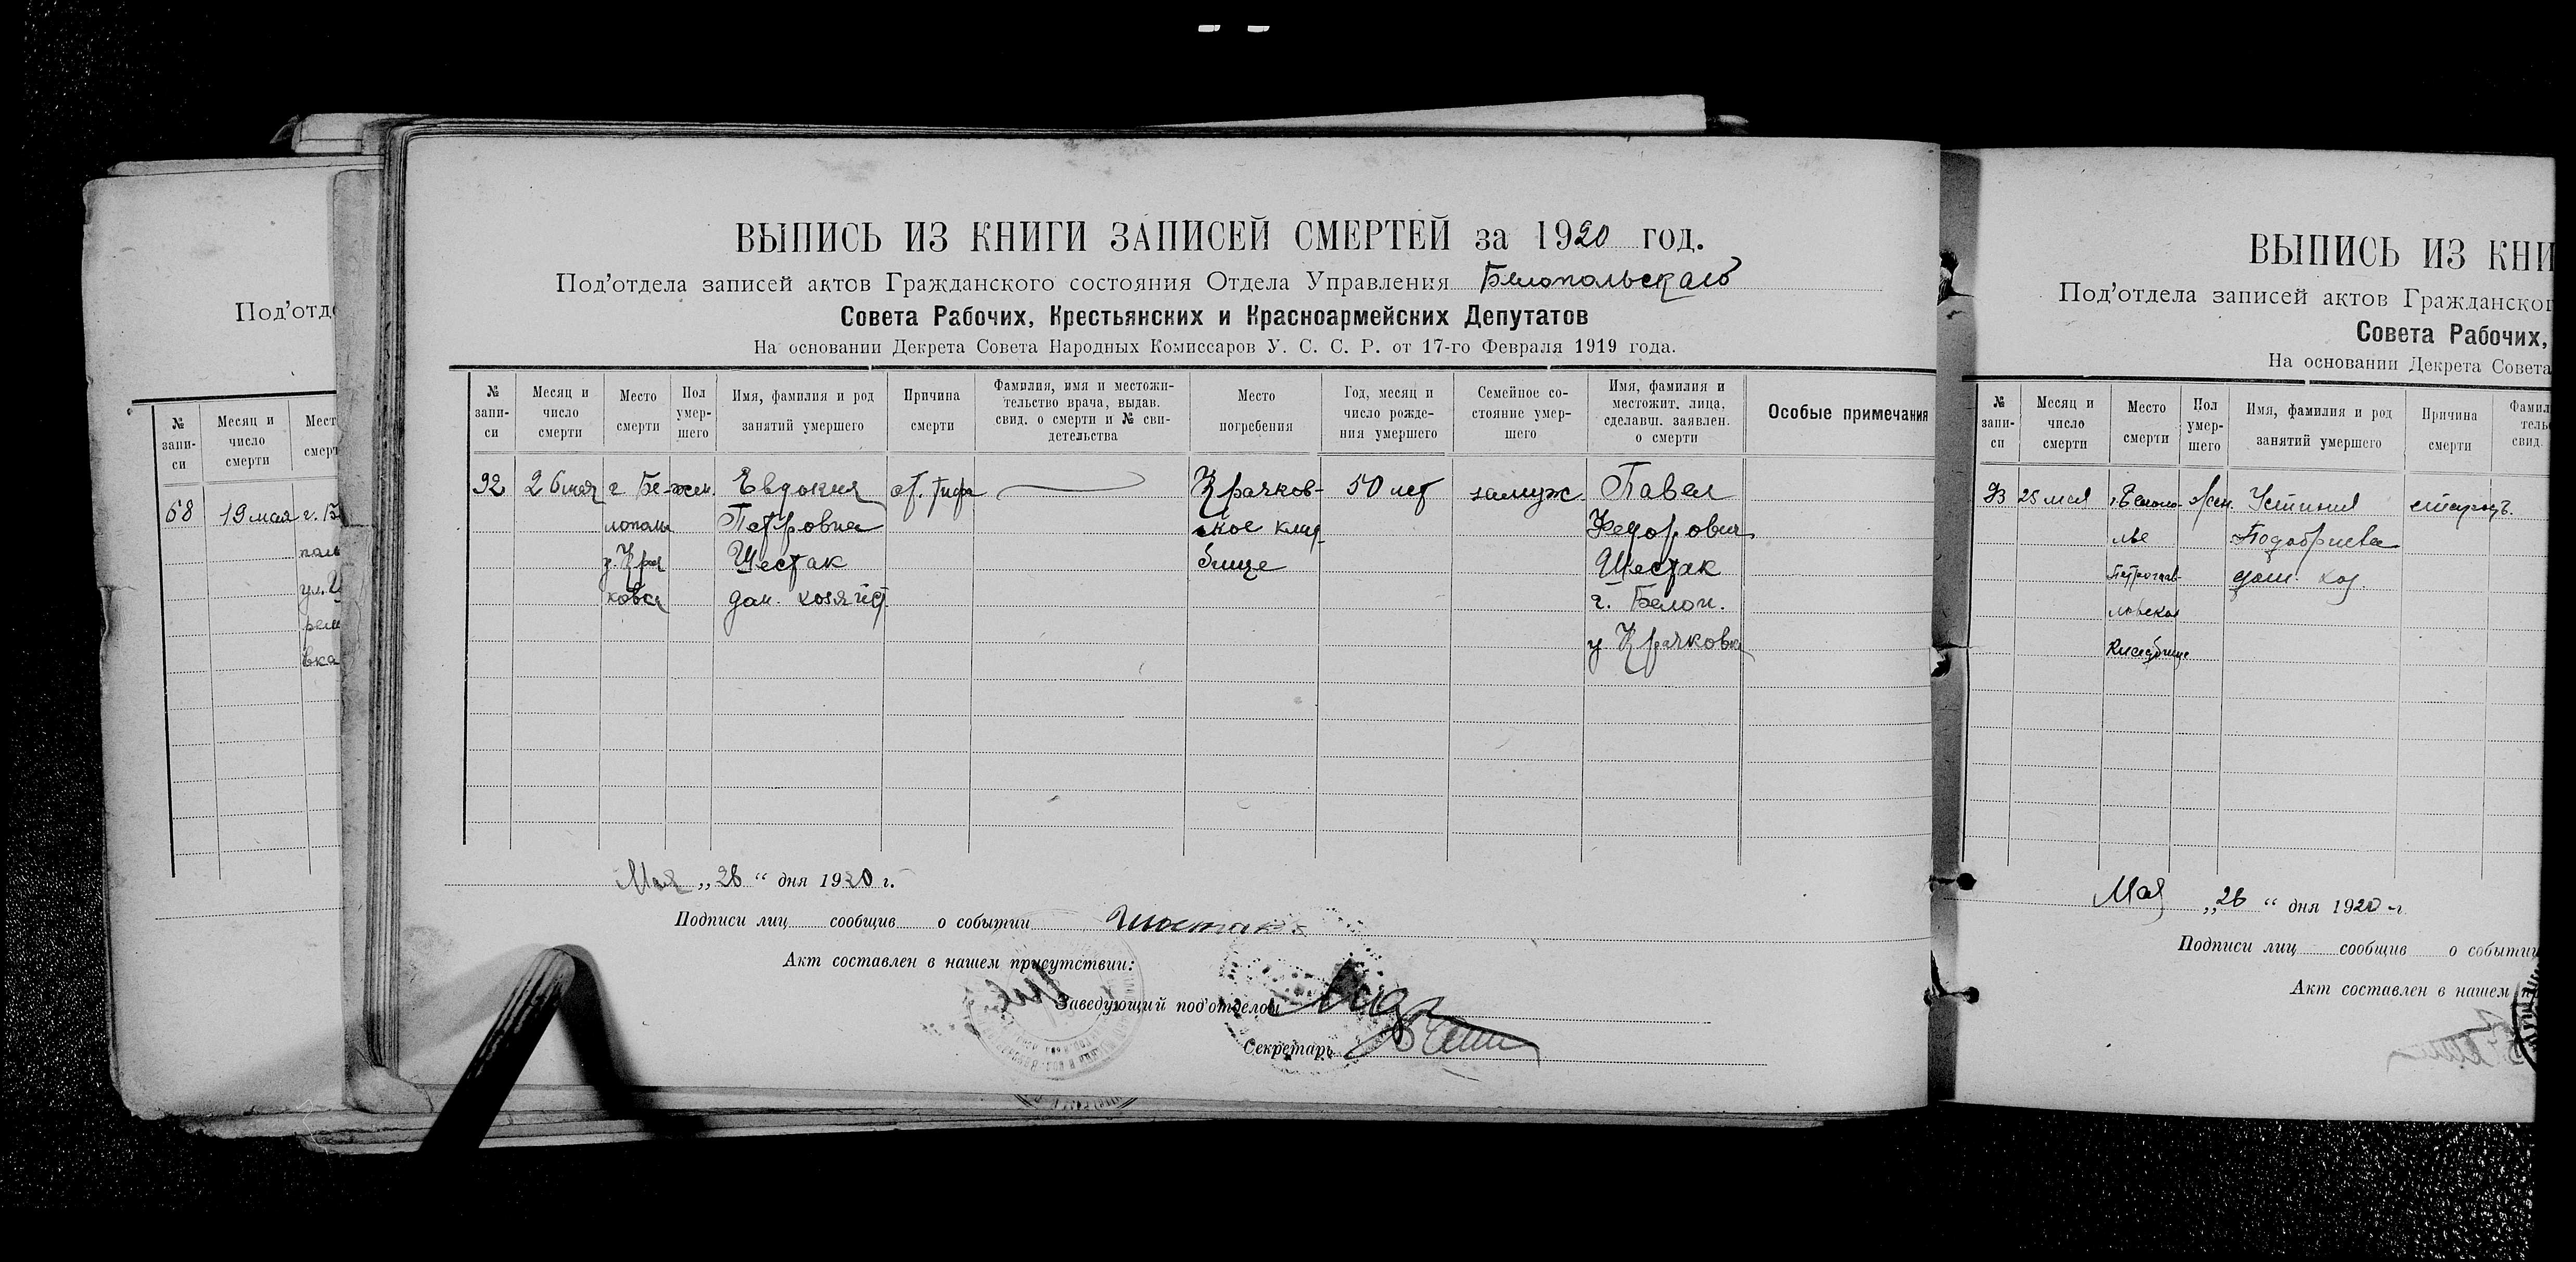 ВЫПИСЬ ИЗ КНИГИ ЗАПИСЕЙ СМЕРТЕЙ за 1920 год.
Под'отдела записей актов Гражданского состояния Отдела Управления Белопольскаго
Совета Рабочих, Крестьянских и Красноармейских Депутатов
На основании Декрета Совета Народных Комиссаров У. С. С. Р. от 17-го Февраля 1919 года.
№ запи-
си
Месяц и
число
смерти
Место
смерти
Пол
умер-
шего
Имя, фамилия и род
занятий умершего
Причина
смерти
Фамилия, имя и местожи-
тельство врача, выдав.
свид. о смерти и № сви-
детельства
Место
погребения
Год, месяц и
число рожде-
ния умершего
Семейное со-
стояние умер-
шего
Имя, фамилия и
местожит. лица,
сделавш. заявлен.
о смерти
Особые примечания
92
26 мая
г Бе-
лополье
у. Кря
ковка
жен.
Евдокия
Петровна
Шестак
дом. хозяйст.
от. тифа
Крячков-
ское клад-
бище
50 лет
замуж.
Павел
Федорович
Шестак
г. Белоп.
у Крячковка
Мая „28“ дня 1920 г.
Подписи лиц сообщив о событии Шостак
Акт составлен в нашем присутствии:
Заведующий под'отделом
Секретарь
Под'отде
№
запи-
си
Месяц и
число
смерти
Мест
смерт
68
19 мая
ВЫПИСЬ ИЗ КНИ
Под'отдела записей актов Гражданског
Совета Рабочих,
На основании Декрета Совета
№
запи-
си
Месяц и
число
смерти
Место
смерти
Пол
умер-
шего
Имя, фамилия и род
занятий умершего
Причина
смерти
Фамил
тель
свид.
93
25 мая
г. Белопо-
лье
кладбище
жен.
Устиния
дом. хоз.
Мая „28“ дня 1920 г.
Подписи лиц сообщив о событии
Акт составлен в нашем